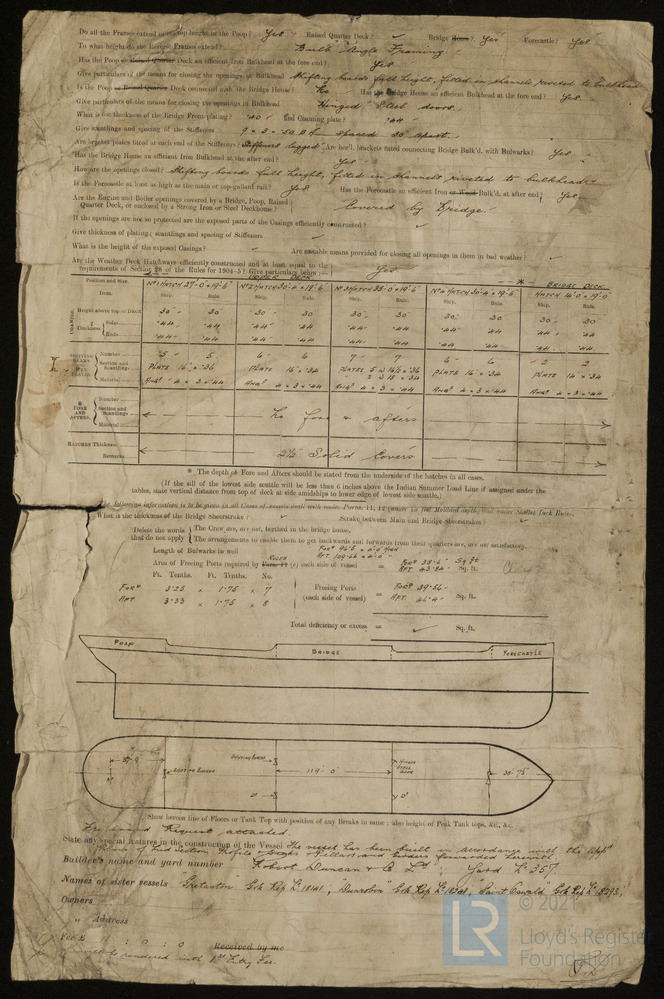 Do all the Frames extend to the top height in the Poop? Yes Raised Quarter Deck? ✓ Bridge House? Yes Forecastle? Yes
To what height do the Reverse Frames extend? Bulb Angle Framing.
Has the Poop or Raised Quarter Deck an efficient Iron Bulkhead at the fore end? Yes
Give particulars of the means for closing the openings in Bulkhead Shifting boards full height, fitted in channels riveted to bulkhead
Is the Poop or Raised Quarter Deck connected with the Bridge House? No Has the Bridge House an efficient Bulkhead at the fore end? Yes
Give particulars of the means for closing the openings in Bulkhead Hinged Steel doors.
What is the thickness of the Bridge Front plating? .40 And Coaming plate? .44
Give scantlings and spacing of the Stiffeners spaced 30" apart.
Are bracket plates fitted at each end of the Stiffeners? Stiffeners lugged Are hor'l. brackets fitted connecting Bridge Bulk'd. with Bulwarks? Yes
Has the Bridge House an efficient Iron Bulkhead at the after end? Yes
How are the openings closed? Shifting boards full height, fitted in channels riveted to bulkhead
Is the Forecastle at least as high as the main or top-gallant rail? Yes Has the Forecastle an efficient Iron or Wood Bulk'd. at after end? Yes
Are the Engine and Boiler openings covered by a Bridge, Poop, Raised
Quarter Deck, or enclosed by a Strong Iron or Steel Deckhouse? Covered by Bridge.
If the openings are not so protected are the exposed parts of the Casings efficiently constructed? ✓
Give thickness of plating; scantlings and spacing of Stiffeners ✓
What is the height of the exposed Casings? ✓ Are suitable means provided for closing all openings in them in bad weather? ✓
Are the Weather Deck Hatchways efficiently constructed and at least equal to the
requirements of Section 28 of the Rules for 1904-5? Give particulars below:— Yes
UPPER DECK * BRIDGE DECK
Position and Size No 1 HATCH 27'-0" × 19'-6" No 2 HATCH 30'-4" × 19'-6" No 3 HATCH 35'-0" × 19'-6" No 4 HATCH 30'-4" × 19'-6" HATCH 14'-0" × 19'-0"
Item. Ship. Rule. Ship. Rule. Ship. Rule. Ship. Rule. Ship. Rule.
COAMING. Height above top of Deck 30" 30 30" 30 30" 30 30" 30 30 30
Thickness Sides .44 .44 .44 .44 .44 .44 .44 .44 .44 .44
Ends .44 .44 .44 .44 .44 .44 .44 .44 .44 .44
SHIFTING BEAMS Number 5 5 6 6 7 7 6 6 2 2
Section and Scantlings PLATE 16" × .34 PLATE 16 × .34 PLATES PLATE 16 × .34 PLATE 14 × .34
Material Angs 4 × 3 × .44 Angs 4 × 3 × .44 Angs 4 × 3 × .44 Angs 4 × 3 × .44 Angs 4 × 3 × .44
FORE AND AFTERS. Number
Section and Scantlings No fore & afters
Material
HATCHES Thickness 2½" Solid Covers
Remarks
* The depth of Fore and Afters should be stated from the underside of the hatches in all cases.
(If the sill of the lowest side scuttle will be less than 6 inches above the Indian Summer Load Line if assigned under the
tables, state vertical distance from top of deck at side amidships to lower edge of lowest side scuttle.)
The following information is to be given in all cases of vessels dealt with under Forms 11, 12
What is the thickness of the Bridge Sheerstrake? ✓ Strake between Main and Bridge Sheerstrakes? ✓
Delete the words that do not apply The Crew are, are not, berthed in the bridge house.
The arrangements to enable them to get backwards and forwards from their quarters are, are not satisfactory.
Length of Bulwarks in well
Area of Freeing Ports required by Rules (c) each side of vessel = Sq. ft.
Ft. Tenths. Ft. Tenths. No.
For'd 3.25 × 1.75 × 7 Freeing Ports For'd 39.56
Aft 3.33 × 1.75 × 8 (each side of vessel) = Aft Sq. ft.
Total deficiency or excess = ✓ Sq. ft.
POOP BRIDGE FORECASTLE
SHIFTING BOARDS
SHIFTING BOARDS 119'-0" HINGED STEEL DOOR
Show hereon line of Floors or Tank Top with position of any Breaks in same; also height of Peak Tank tops, &c., &c.
Freeboard Request attached.
State any special features in the construction of the Vessel The vessel has been built in accordance with the app'd
Plans of Mid Section, Profile & Decks, Pillars, and Girders forwarded herewith.
Builder's name and yard number Robert Duncan & Co Ld. Yard No 357
Names of sister vessels "Gretaston" Glk Rep No 18141; "Dunrobin" Glk Rep No; "Saint Oswald" Glk Rep No
Owners
" Address
Fee £ : 0 : 0 Received by me
to be rendered with 1st Entry Fee.
© 2021
LR
Lloyd's Register
Foundation